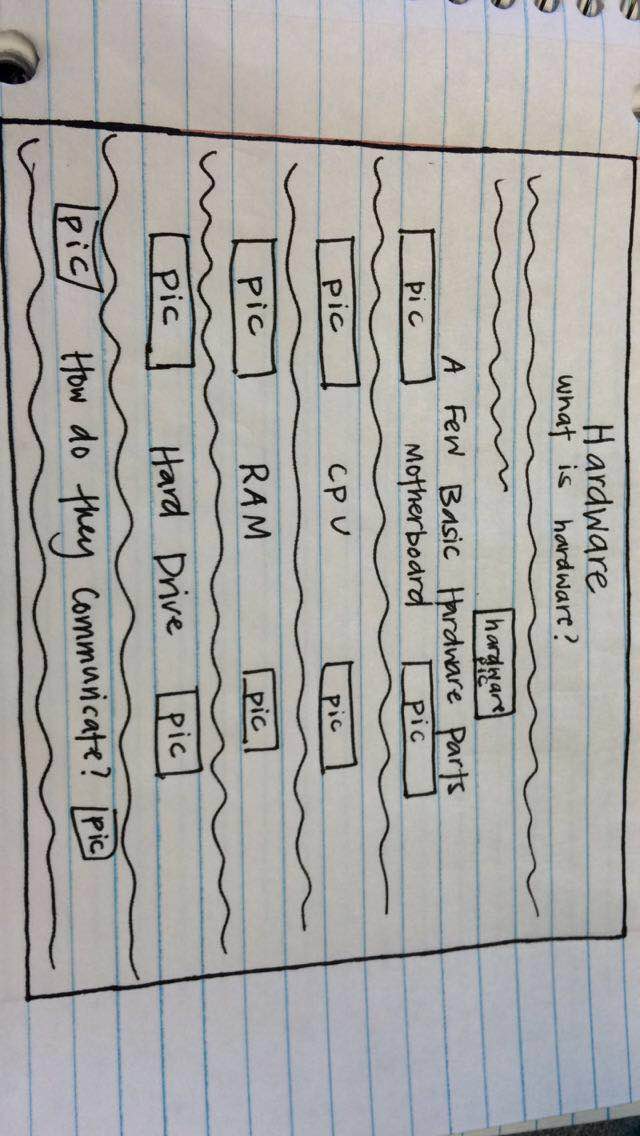 Hardware
what is hardware?
hardware pic
A Few Basic Hardware Parts
pic Motherboard pic
pic CPU pic
pic RAM pic
pic Hard Drive pic
pic How do they Communicate? pic